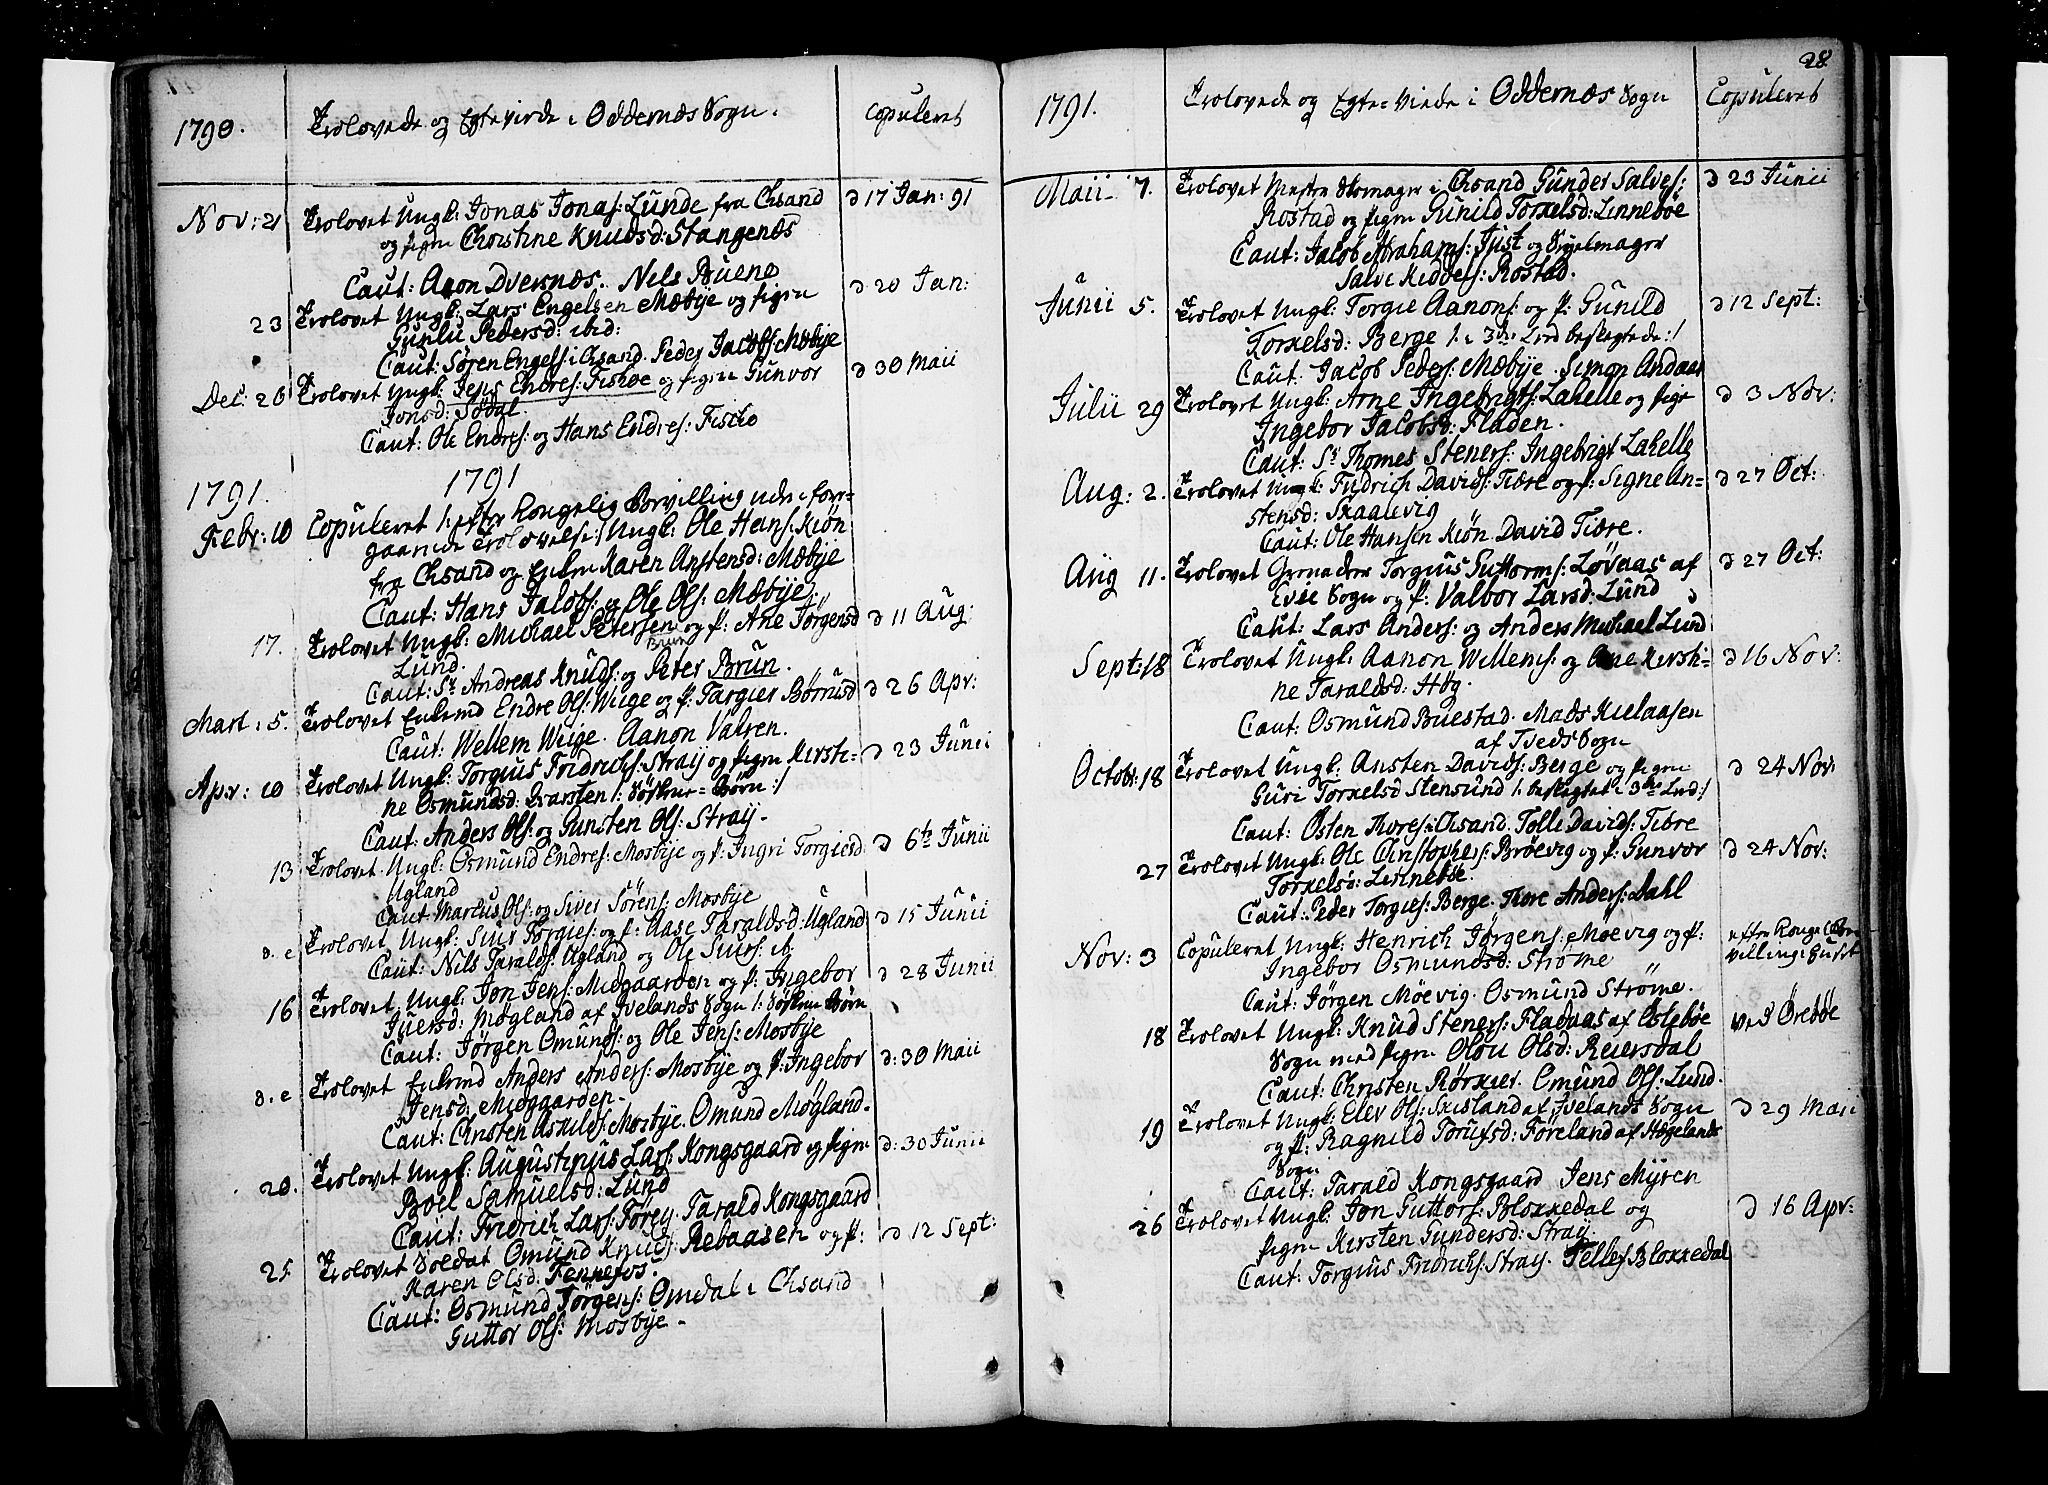 1790.
Trolovede og Egteviede i Oddernæs Sogn.
Copuleret
Nov: 21 Trolovet Ungk: Jonas Jonas: Lunde fra Chsand d 17 Jan: 91
og Pigen Christine Knudsd: Stangenæs
Caut: Aaon Dvernæs. Nils Buene
23 Trolovet Ungk: Lars Engelsen Mæbye og Pigen d 20 Jan:
Gunlu Pedersd: ibid:
Caut: Søren Engels: i Chsand. Peder Jacobs: Mæbye
Dec: 26 Trolovet Ungk: Jens Endres: Fiskoe og Pigen Gunvor d 30 Maii
Jonsd: Sødal.
Caut: Ole Endres: og Hans Endres: Fiskoe
1791. 1791
Febr: 10 Copuleret /: efter Kongelig Bevilling uden foregaaende
Trolovelse :/ Ungk: Ole Hans: Kiøn
fra Chsand og Enken Karen Anstensd: Mæbye
Caut: Hans Jacobs: og Ole Ols: Mæbye.
17. Trolovet Ungk: Michael Petersen Brun og P: Ane Jørgensd d 11 Aug:
Lund.
Caut: Sr Andreas Knuds: og Peter Brun.
Mart: 5. Trolovet Enkemd Endre Ols: Wiige og P: Targier Børrusd d 26 Apr:
Caut: Wellem Wiige. Aanon Varren.
Apr: 10 Trolovet Ungk: Torgius Fridrichs: Straij og Pigen Kersti- d 23 Junii
ne Osmundsd: /: Søskene-Børn :/
Caut: Anders Ols: og Gunsten Ols: Straij.
13 Trolovet Ungk: Osmund Endres: Mosbye og P: Ingri Torgiesd d 6te Junii
Ugland
Caut: Marcus Ols: og Siver Sørens: Mosbye
d. e Trolovet Ungk: Siur Torgies: og P: Aase Taraldsd: Ugland d 15 Junii
Caut: Nils Taralds: Ugland og Ole Siurs: ib.
16 Trolovet Ungk: Jon Jens: Midgaarden og P: Ingebor d 28 Junii
Juersd: Mögland af Ivelands Sogn /: Søskene Børn
Caut: Jørgen Omunds: og Ole Jens: Mosbye
d. e Trolovet Enkemd Anders Anders: Mosbye og P: Ingebor d: 30 Maii
Jensd: Midgaarden.
Caut: Christen Askilds: Mosbye. Omund Mögland.
20. Trolovet Ungk: Augustinus Lars: Kongsgaard og Pigen d: 30 Junii
Boel Samuelsd: Lund
Caut: Fridrich Lars: Torey. Tarald Kongsgaard
25 Trolovet Soldat Omund Knuds: Rebaasen og P: d 12 Sept:
Karen Olsd: Fennefos.
Caut: Osmund Jørgens: Omdal i Chsand
Guttor Ols: Mosbye.
28.
1791.
Trolovede og Egte-viede i Oddernæs Sogn
Copuleret
Maii 7. Trolovet Mester Skomager i Chsand Gunder Salves: d 23 Junii
Rostad og Pigen Gunild Torkelsd: Linnebøe
Caut: Jacob Abrahams: Just og
Salve Kedders: Rostad.
Junii 5. Trolovet Ungk: Torgie Aanons: og P: Gunild d 12 Sept:
Torkelsd: Berge /: i 3die Led beslegtede :/
Caut: Jacob Peders: Mæbye. Simon Andaas
Julii 29 Trolovet Ungk: Arne Ingebrigts: Lahelle og Pige d 3 Nov:
Ingebor Jacobsd: Fladen.
Caut: Sr Thomes Steners: Ingebrigt Lahelle
Aug: 2. Trolovet Ungk: Fridrich Davids: Tiøre og P: Signe An- d 27 Oct:
stensd: Skaalevig
Caut: Ole Hansen Kiön. David Tiøre.
Aug 11. Trolovet Grenadeer Torgius Guttorms: Løvaas af d 27 Oct:
Evie Sogn og P: Valbor Larsd: Lund
Caut: Lars Anders: og Anders Michael Lund
Sept: 18 Trolovet Ungk: Aanon Wellems: og Ane Kersti- d 16 Nov:
ne Taraldsd: Høg.
Caut: Osmund Buestad. Mads Kielaasen
af Tveds Sogn
Octobr: 18 Trolovet Ungk: Ansten Davids: Berge og Pigen d 24 Nov:
Guri Torkelsd Stensund /: beslegtet i 3die Led :/
Caut: Østen Thores: i Chsand. Tolle Davids: Tiøre
27 Trolovet Ungk: Ole Christophers: Brøevig og P: Gunvor d 24 Nov:
Torkelsd: Linnebøe.
Caut: Peder Torgies: Berge. Thore Anders: Dahl
Nov: 3 Copuleret Ungk: Henrich Jørgens: Møevig og P: efter Konge Be-
Ingebor Osmundsd: Strøme villing i Huset
Caut: Jörgen Möevig. Osmund Strøme.
18 Trolovet Ungk: Knud Steners: Fladaas af Oslebøe ved Ørebøe
Sogn med Pigen Olou Olsd: Reiersdal
Caut: Christen Rørkier. Omund Ols: Lund.
19 Trolovet Ungk: Elev Ols: Skisland af Ivelands Sogn d 29 Maii
og P: Ragnild Torufsd: Føreland af Hægelands
Sogn
Caut: Tarald Kongsgaard Jens Myren
26 Trolovet Ungk: Jon Guttors: Blokkedal og d 16 Apr:
Pigen Kirsten Gundersd: Straij
Caut: Torgius Fridrichs: Straij. Tellef Blokkedal